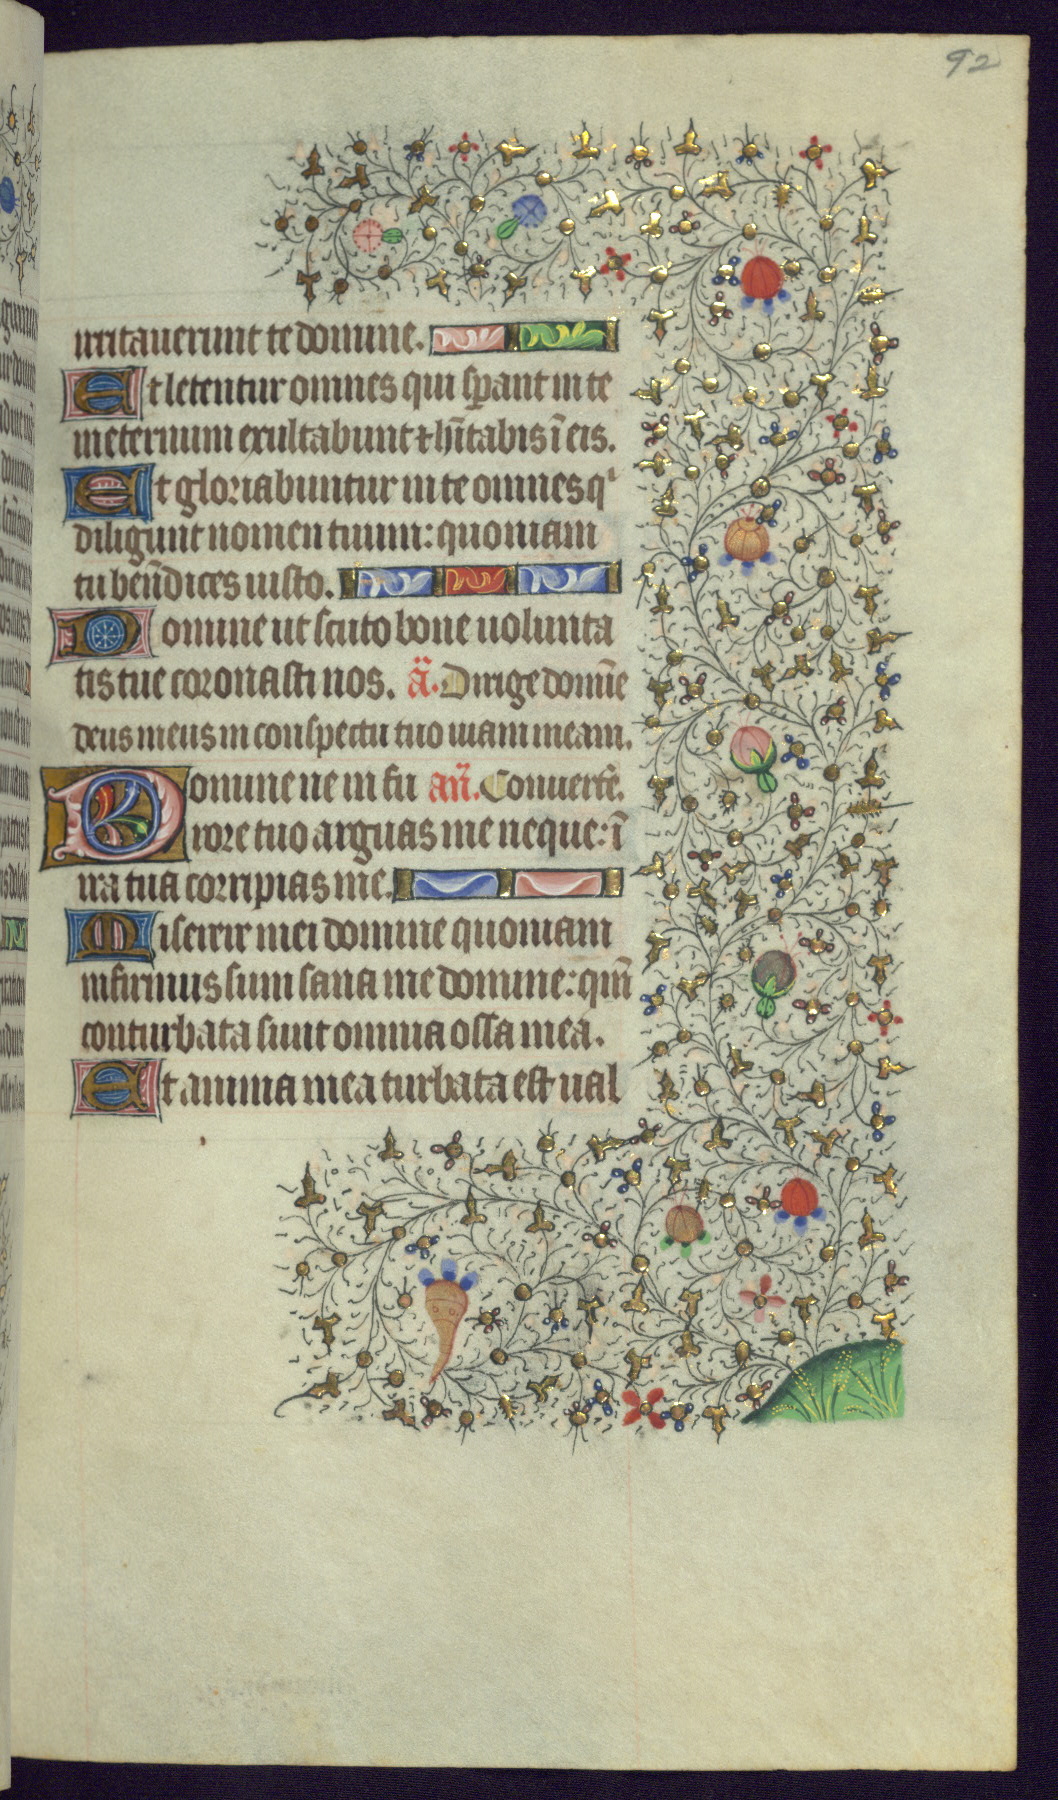 92
irritauerunt te domine.
Et letentur omnes qui sp̅ant in te
in eternum exultabunt ⁊ hi̅tabis i̅ eis.
Et gloriabuntur in te omnes qⁱ
diligunt nomen tuum: quoniam
tu ben̅dices iusto.
Domine ut scuto bone uolunta
tis tue coronasti nos. a̅. Dirige domi̅e
deus meus in conspectu tuo uiam meam.
Domine ne in fu an̅. Conuerte̅.
rore tuo arguas me neque: i̅
ira tua corripias me.
Miserir mei domine quoniam
infirmus sum sana me domine: qm̅
conturbata sunt omnia ossa mea.
Et anima mea turbata est ual